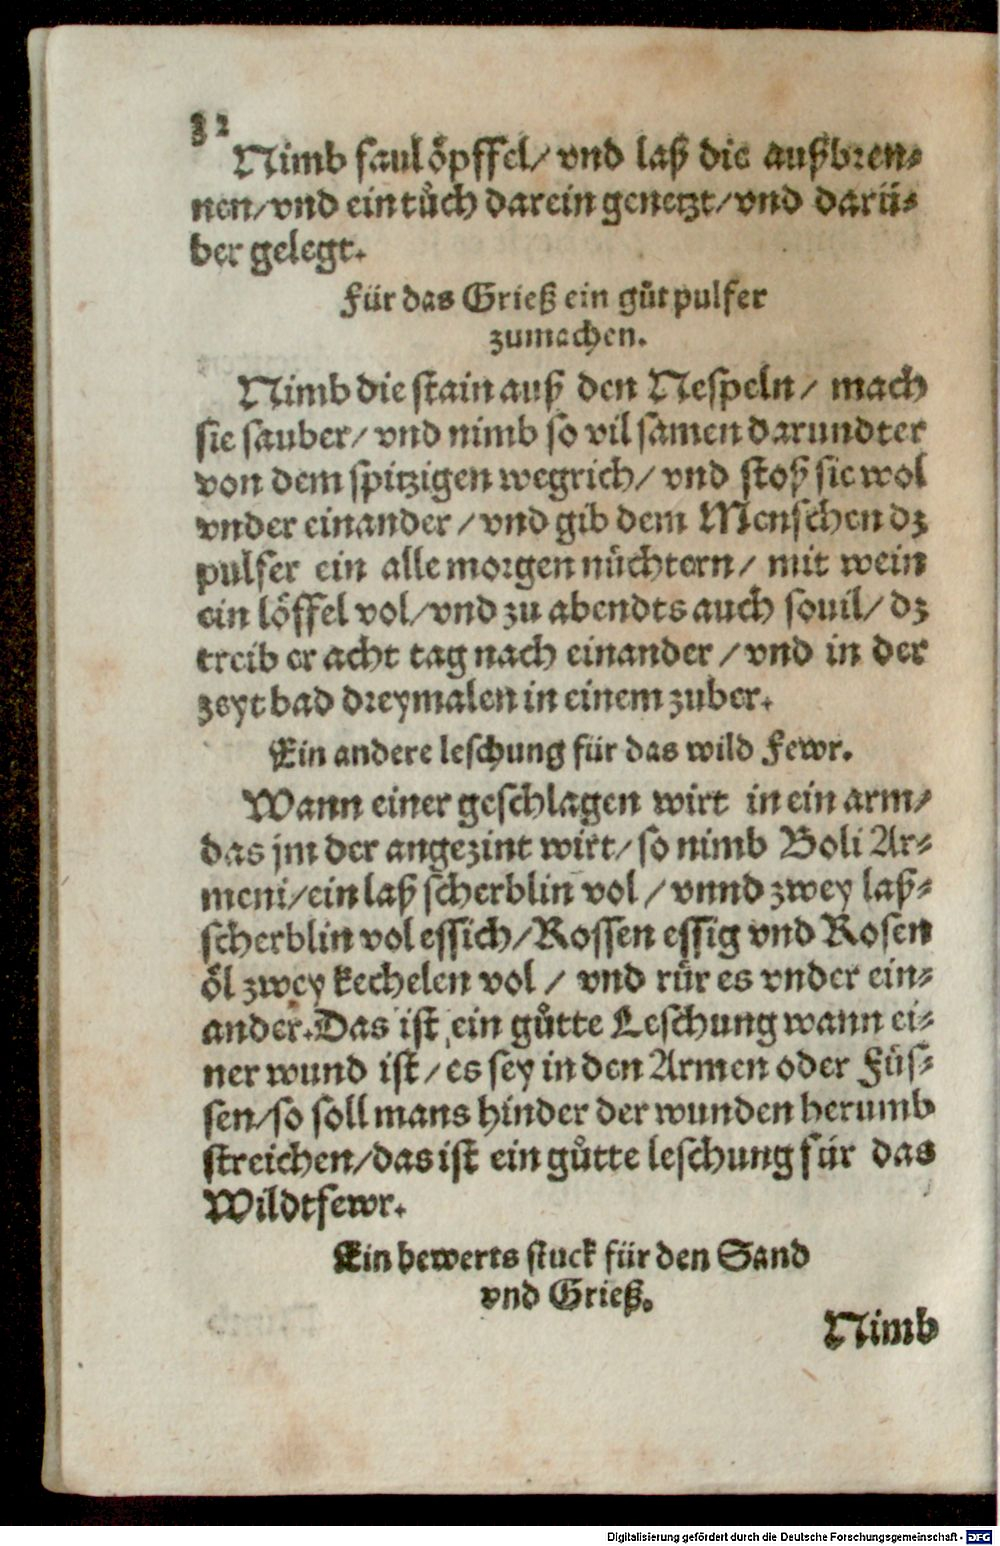 32
Nimb faul öpffel/ vnd laß die außbren⸗
nen/vnd ein tůch darein genetzt/vnd darü⸗
ber gelegt.
Für das Grieß ein gůt pulfer
zumachen.
Nimb die stain auß den Nespeln/ mach
sie sauber/ vnd nimb so vil samen darundter
von dem spitzigen wegrich/ vnd stoß sie wol
vnder einander/ vnd gib dem Menschen dz
pulfer ein alle morgen nüchtern/ mit wein
ein löffel vol/vnd zu abendts auch souil/ dz
treib er acht tag nach einander/ vnd in der
zeyt bad dreymalen in einem zuber.
Ein andere leschung für das wild Fewr.
Wann einer geschlagen wirt in ein arm/
das jm der angezint wirt/ so nimb Boli Ar⸗
meni/ein laß scherblin vol/ vnnd zwey laß⸗
scherblin vol essich/Rossen essig vnd Rosen
öl zwey kechelen vol/ vnd rür es vnder ein⸗
ander.Das ist ein gůtte Leschung wann ei⸗
ner wund ist/ es sey in den Armen oder Füs⸗
sen/so soll mans hinder der wunden herumb
streichen/das ist ein gůtte leschung für das
Wildtfewr.
Ein bewerts stuck für den Sand
vnd Grieß.
Nimb
Digitalisierung gefördert durch die Deutsche Forschungsgemeinschaft - DFG